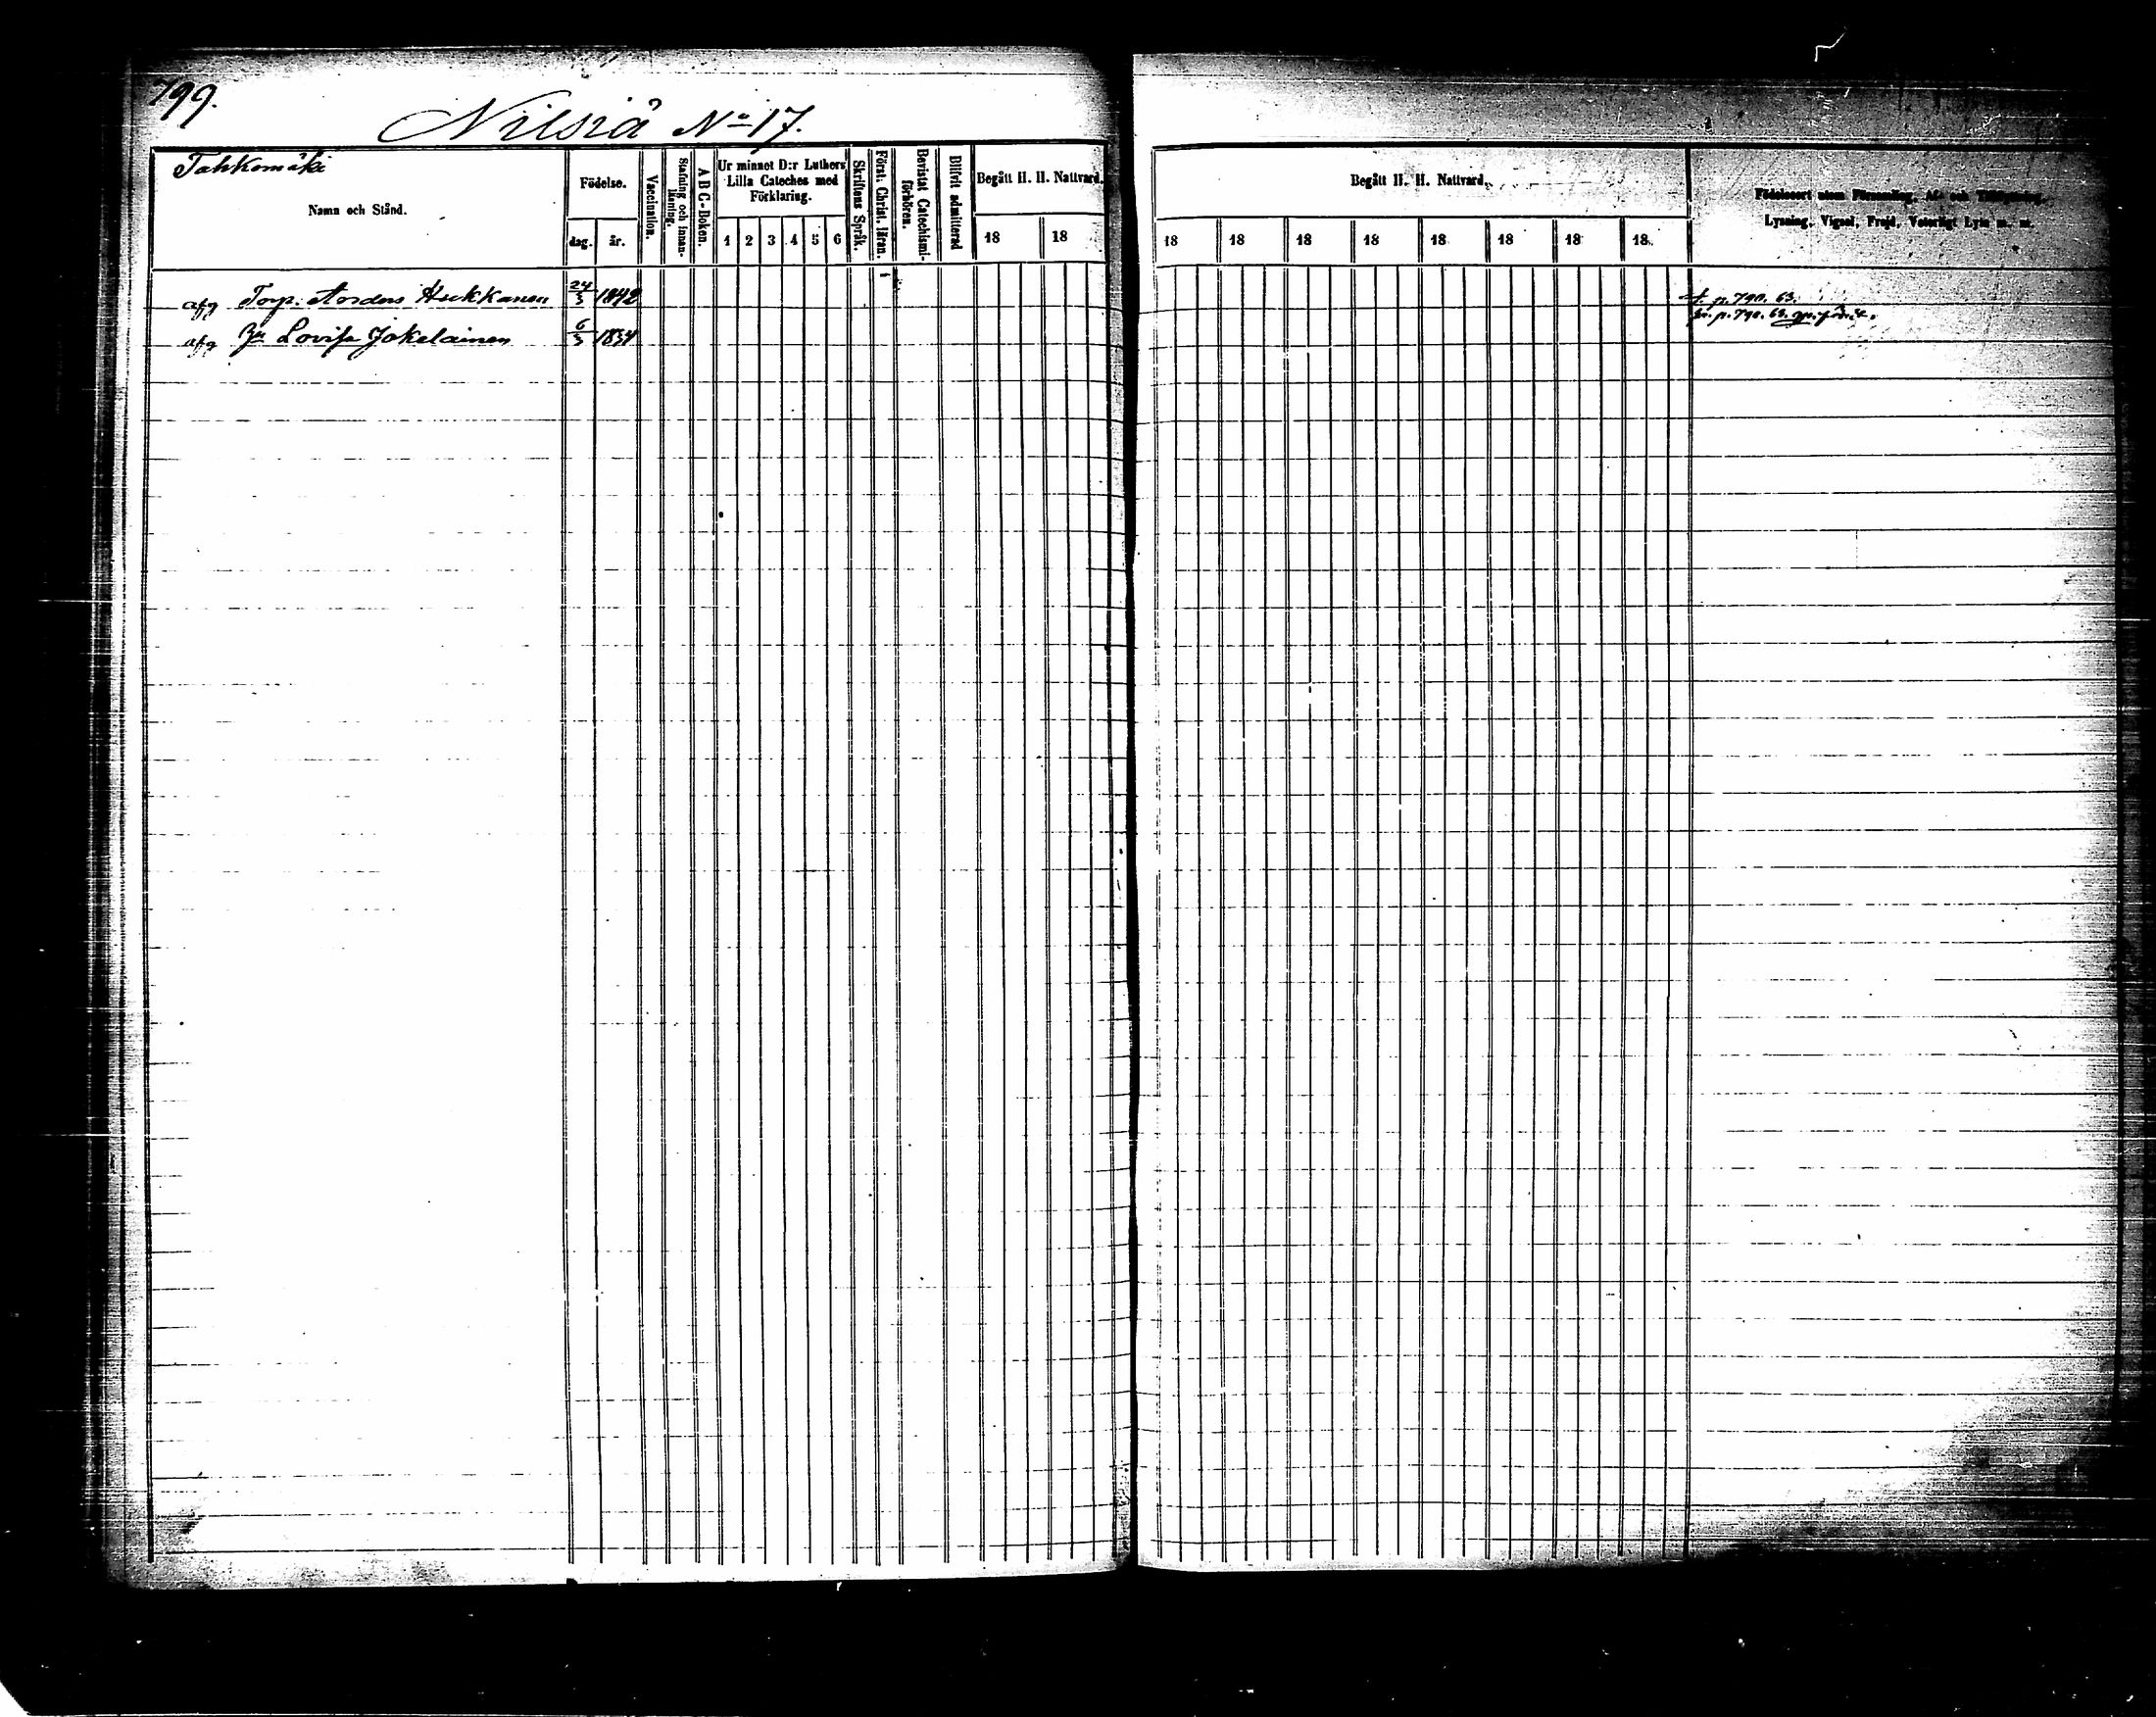 799.
Nilsiä No 17.
Tahkomäki
Namn och Stånd.
Födelse.
dag. år.
Vaccination.
Stafning och innan-läsning.
A B C-Boken.
Ur minnet D:r Luthers
Lilla Cateches med
Förklaring.
1 2 3 4 5 6
Skriftens Språk.
Först. Christ. läran.
Bevistat Catechismi-förhören.
Blifvit admitterad
Begått H. H. Nattvard.
18 18
Begått H. H. Nattvard.
18 18 18 18 18 18 18 18
Födelseort utom Församling, Af- och Tillflyttning,
Lysning, Vigsel, Frejd, Vaterligt Lyte m. m.
afg Torp. Anders 24/3 1842
afg Lovisa Jokelainen 6/3 1834
p. 790. 63.
p. 790. 63.